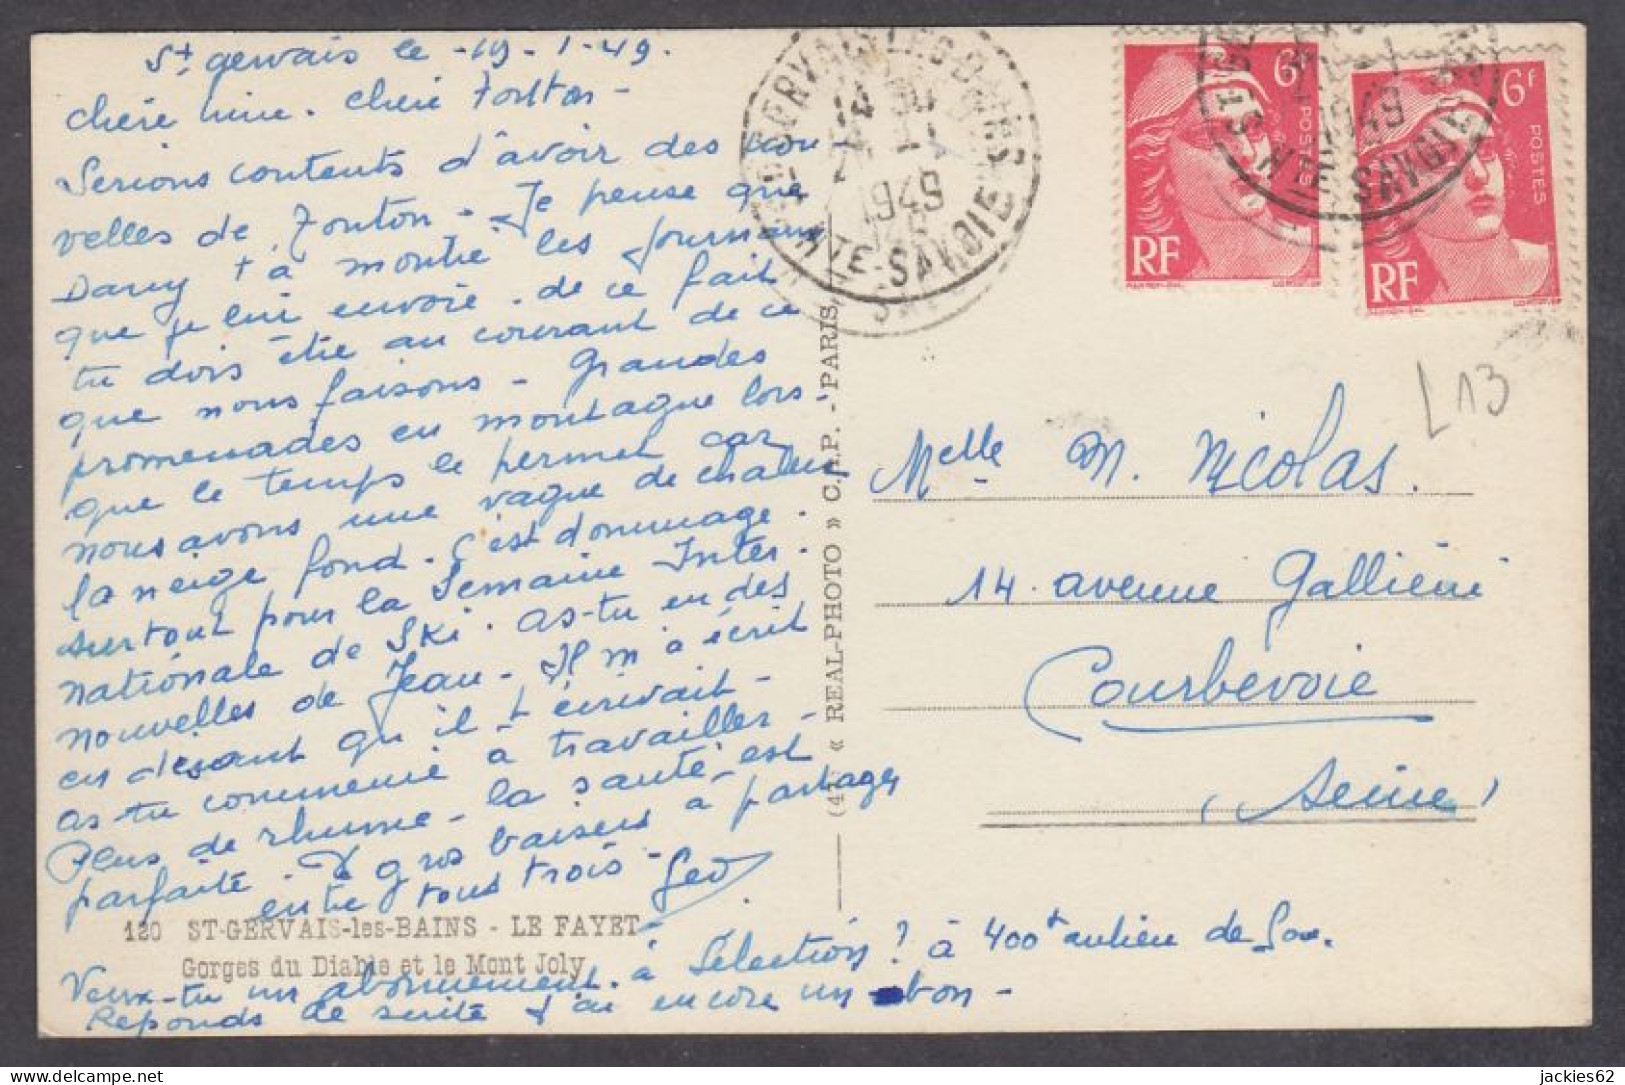 St gervais le -19-1-49.
chère Mine. Chère Fonton -
Serions contents d'avoir des nou
velles de Fonton - Je pense que
Dany t'a montré les journaux
que je lui envoie. de ce fait
tu dois être au courant de ce
que nous faisons - Grandes
promenades en montagne lors-
que le temps le permet car
nous avons une vague de chaleur
la neige fond. C'est dommage.
surtout pour la Semaine Inter-
nationale de Ski. As-tu eu des
nouvelles de Jean - Il m'a écrit
en disant qu'il t'écrivait -
as-tu commencé à travailler -
Plus de rhume - la santé est
parfaite. gros baisers à partager
entre tous trois - Geo
120 ST-GERVAIS-les-BAINS - LE FAYET
Gorges du Diable et le Mont Joly
Veux-tu un abonnement à Sélection? à 400 au lieu de
Reponds de suite j'ai encore un bon -
(47) « REAL-PHOTO » C.A.P. - PARIS
ST GERVAIS LES BAINS
1949
HTE-SAVOIE
6F
POSTES
RF
6F
POSTES
RF
1949
HTE-SAVOIE
L13
Melle M. Nicolas.
14. avenue Galliéni
Courbevoie
(Seine)
jackies62